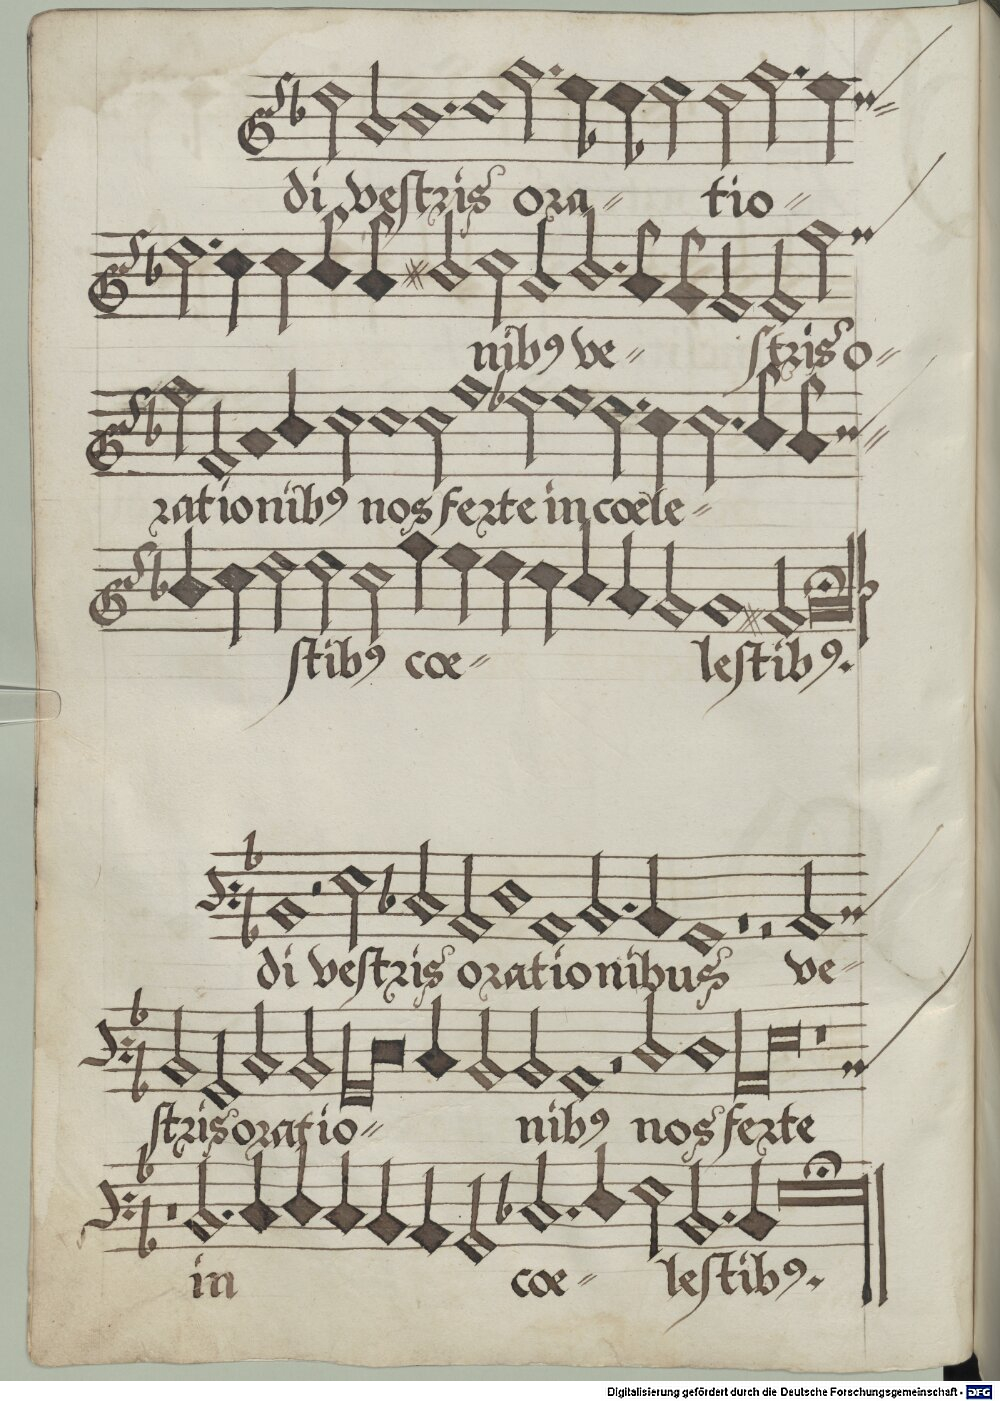 di vestris ora= tio=
nibꝰ ve= stris o=
rationibꝰ nos ferte in coele=
stibꝰ coe= lestibꝰ.
di vestris orationibus ve=
stris oratio= nibꝰ nos ferte
in coe= lestibꝰ.
Digitalisierung gefördert durch die Deutsche Forschungsgemeinschaft - DFG